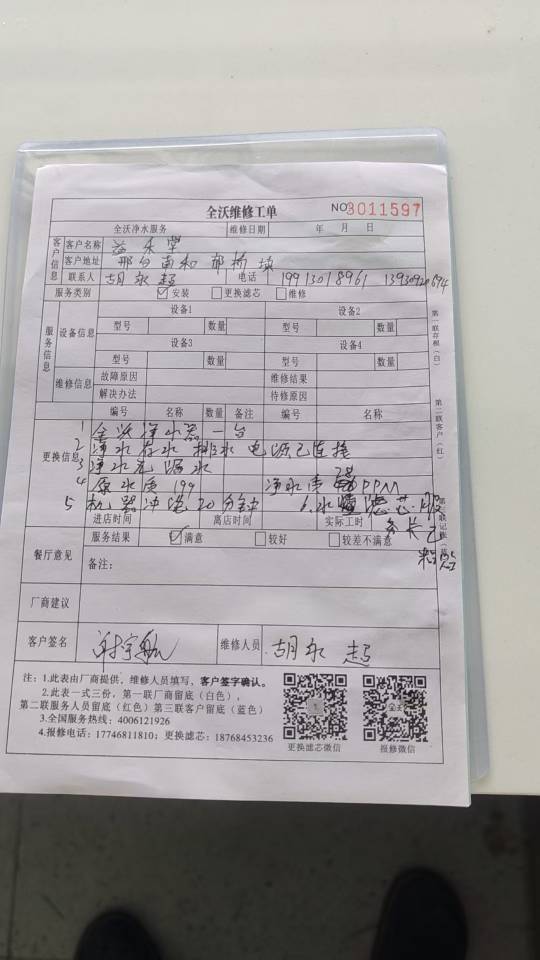 全沃维修工单 NO 3011597
全沃净水服务 维修日期 年 月 日
客户信息 客户名称 益禾堂
客户地址 邢台南和 郝桥镇
联系人 胡永超 电话 19913018961
服务类别 ☑安装 □更换滤芯 □维修
第一联存根(白)
第二联客户(红)
服务信息 设备信息 设备1 设备2
型号 数量 型号 数量
设备3 设备4
型号 数量 型号 数量
维修信息 故障原因 维修结果
解决办法 待修原因
更换信息 编号 名称 数量 备注 编号 名称
1 全沃净水器一台
2 净水存水 排水 电源已连接
3 净水无漏水
4 原水质 199 净水质 PPM
5 机器冲洗20分钟 6.水 滤芯
进店时间 离店时间 实际工时
餐厅意见 服务结果 ☑满意 □较好 □较差不满意
备注:
厂商建议
客户签名 维修人员 胡永超
注:1.此表由厂商提供,维修人员填写,客户签字确认。
2.此表一式三份,第一联厂商留底(白色),
第二联服务人员留底(红色)第三联客户留底(蓝色)
3.全国服务热线:4006121926
4.报修电话:17746811810;更换滤芯:18768453236
更换滤芯微信 报修微信